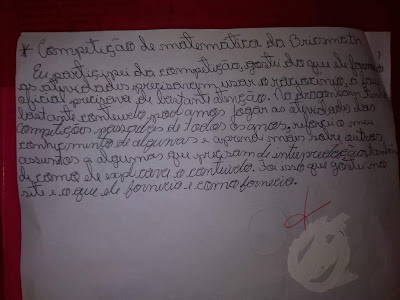 * Competição de matemática da Bricsmath
Eu participei da competição, gostei do que ele fornecia
as atividades precisavam usar o raciocínio, a fase
oficial precisava de bastante atenção. No dragonlearn tinha
bastante conteudo podiamos jogar as atividades das
competição passadas de todos os anos, reforçei o meu
conhecimento de algumas e aprendi mais sobre outros
assuntos e algumas que precisam de interpretação gostei
de como ele explicava o conteudo. Foi isso que gostei no
site e o que ele fornecia e como fornecia.